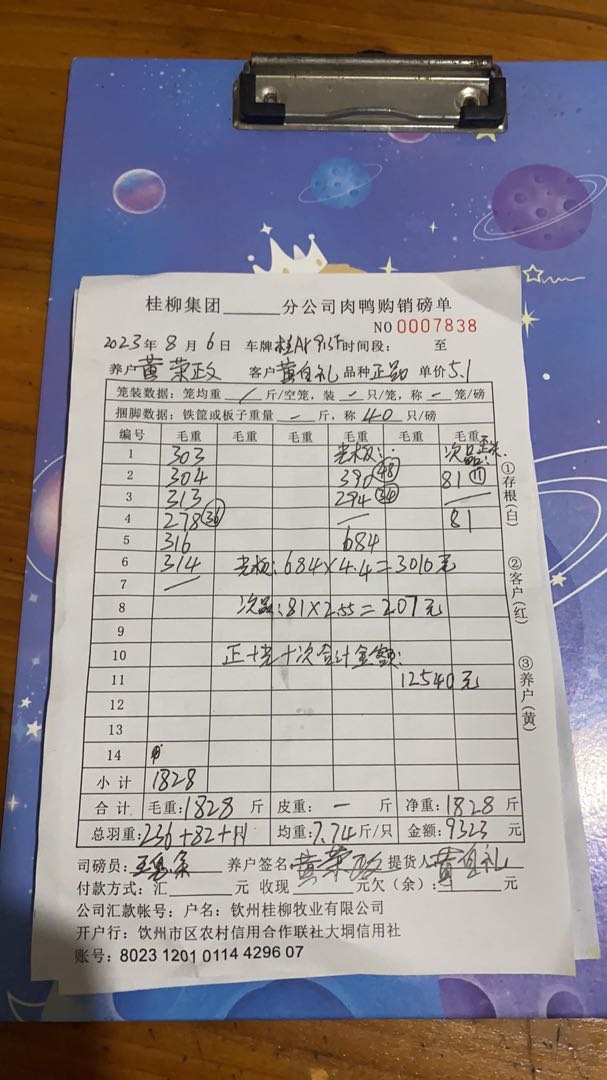 桂柳集团______分公司肉鸭购销磅单
NO 0007838
2023年 8月 6日 车牌 时间段: 至
养户 黄荣政 客户 黄自礼 品种 正品 单价 5.1
笼装数据: 笼均重 / 斤/空笼, 装 - 只/笼, 称 - 笼/磅
捆脚数据: 铁筐或板子重量 - 斤, 称 40 只/磅
编号 毛重 毛重 毛重 毛重 毛重 毛重
1 303 老板: 次品
2 304 390 (48) 81 (11)
3 313 294 (36)
4 278 (36) — 81
5 316 684
6 314 老板: 684×4.4=3010元
7 —
8 次品: 81×2.55=207元
9
10 正+老+次合计金额:
11 12540元
12
13
14
小计 1828
合计 毛重: 1828 斤 皮重: — 斤 净重: 1828 斤
总羽重: 236+82+11 均重: 7.74 斤/只 金额: 9323 元
司磅员: 养户签名 黄荣政 提货人 黄自礼
付款方式: 汇______元 收现______元欠(余):______元
公司汇款帐号: 户名: 钦州桂柳牧业有限公司
开户行: 钦州市区农村信用合作联社大垌信用社
账号: 8023 1201 0114 4296 07
①存根(白)
②客户(红)
③养户(黄)